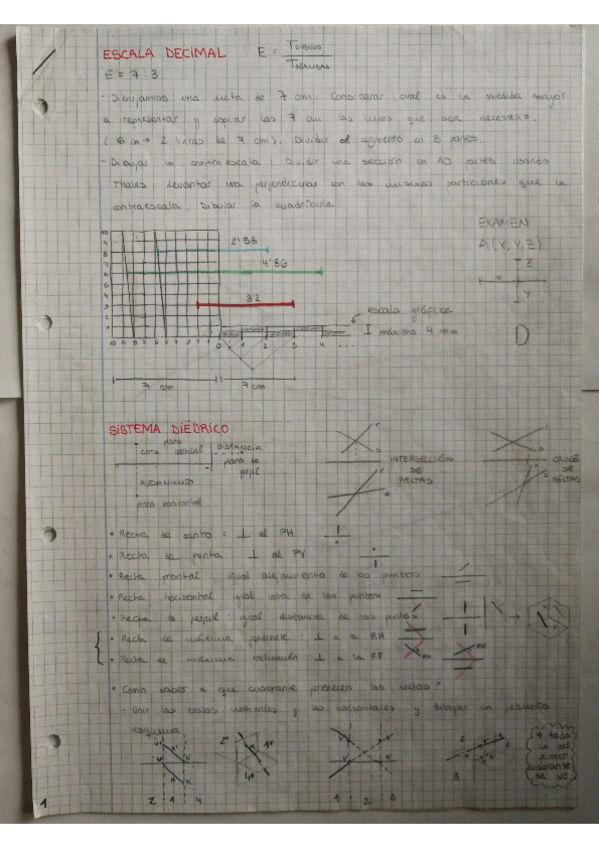 ESCALA DECIMAL E = T DIBUJO / T REALIDAD
E = 7 : 3
- Dibujamos una recta de 7 cm. Considerar cual es la medida mayor
a representar y copiar las 7 cm las veces que sea necesario.
( 6 cm → 2 líneas de 7 cm ). Dividir el segmento en 3 partes.
- Dibujar la contraescala : Dividir una sección en 10 partes usando
Thales levantar una perpendicular con las mismas particiones que la
contraescala. Dibujar la cuadrícula
EXAMEN
A ( X, Y, Z )
2'58
4'86
3'2
Z
X
Y
escala gráfica
máximo 4 mm
D
0 1 2 3 4 ...
7 cm 7 cm
SISTEMA DIÉDRICO
plano
COTA vertical DISTANCIA
plano de
perfil
ALEJAMIENTO
plano horizontal
INTERSECCIÓN
DE
RECTAS
CRUCE
DE
RECTAS
• Recta de punta : ⊥ al PH
• Recta de punta ⊥ al PV
• Recta frontal igual alejamiento de los puntos
• Recta horizontal igual cota de los puntos
• Recta de perfil : igual distancia de los puntos
• Recta de máxima pendiente : ⊥ a la RH
• Recta de máxima inclinación : ⊥ a la RF
• Como saber a que cuadrante pertenecen las rectas?
- Unir las trazas verticales y las horizontales y dibujar un pequeño
esquema
2 1 4
2º 1º
4º
1 2 3
2 1
3
1